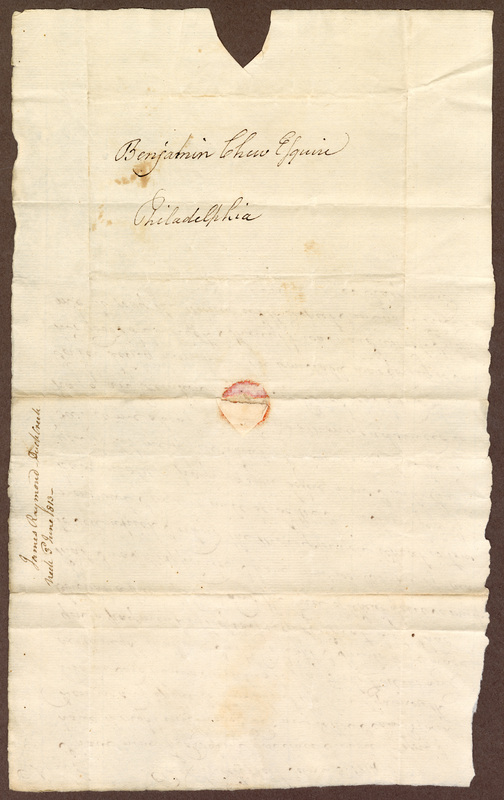 Benjamin Chew Esquire
Philadelphia
James Raymond Duck Creek
Recd 3d June 1813-